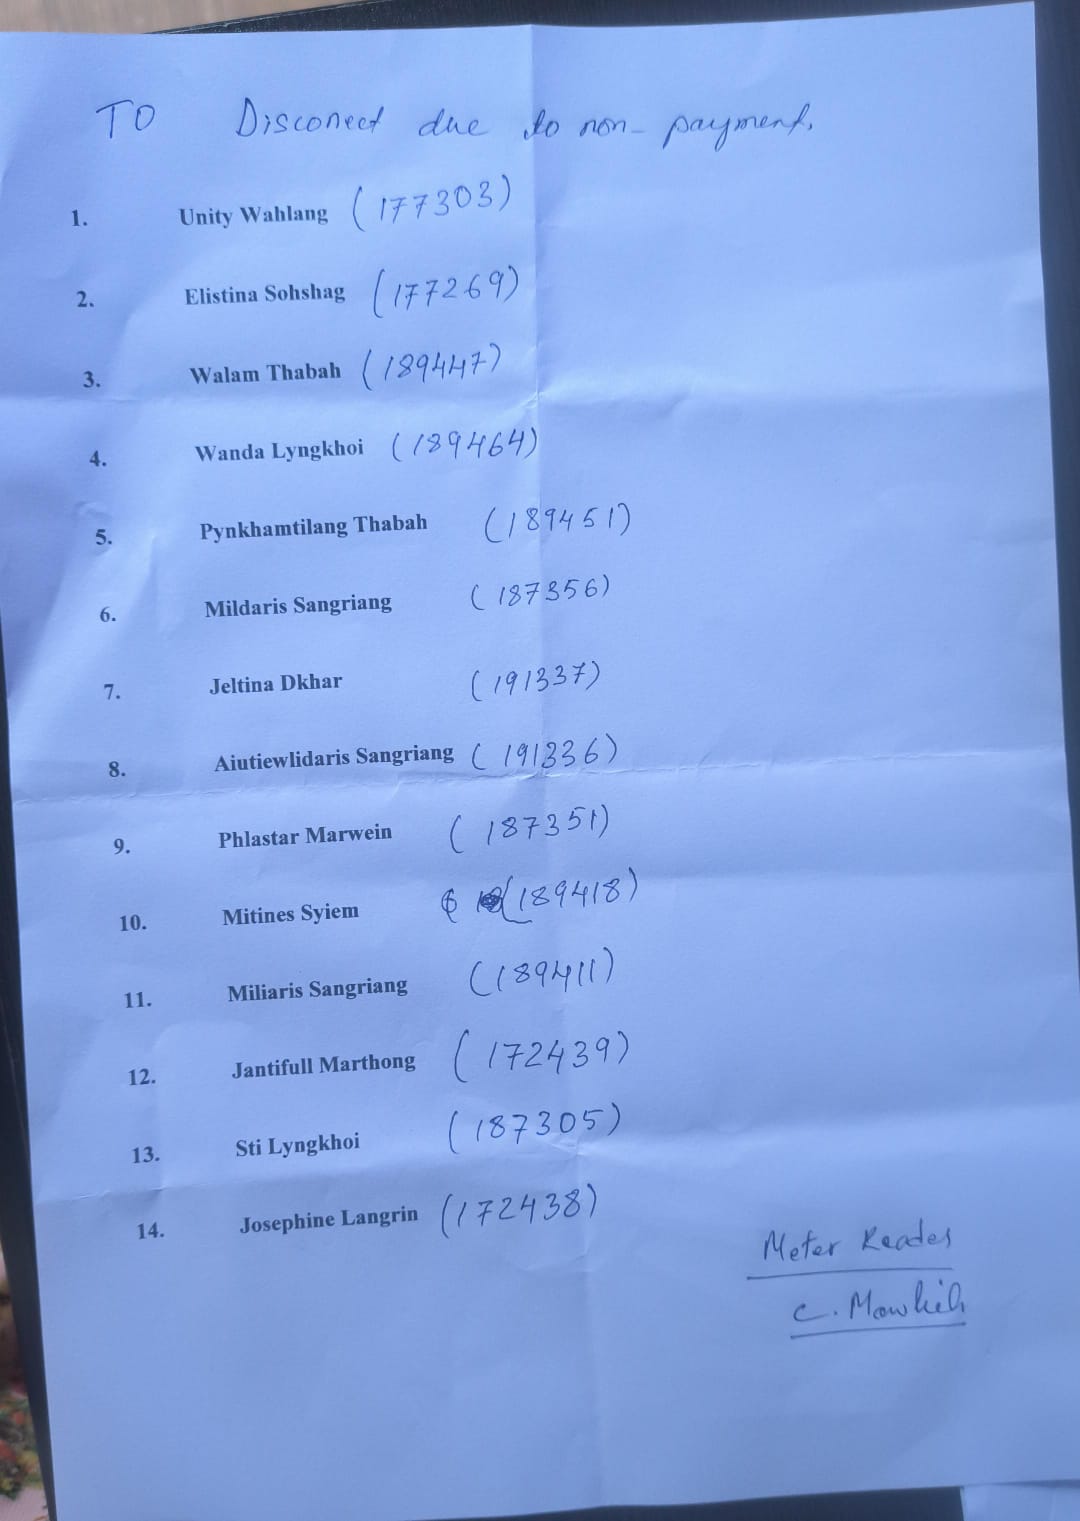 TO Disconect due to non-payment.
1. Unity Wahlang (177303)
2. Elistina Sohshag (177269)
3. Walam Thabah (189447)
4. Wanda Lyngkhoi (189464)
5. Pynkhamtilang Thabah (189451)
6. Mildaris Sangriang (187356)
7. Jeltina Dkhar (191337)
8. Aiutiewlidaris Sangriang (191336)
9. Phlastar Marwein (187351)
10. Mitines Syiem (189418)
11. Miliaris Sangriang (189411)
12. Jantifull Marthong (172439)
13. Sti Lyngkhoi (187305)
14. Josephine Langrin (172438)
Meter Reader
C.